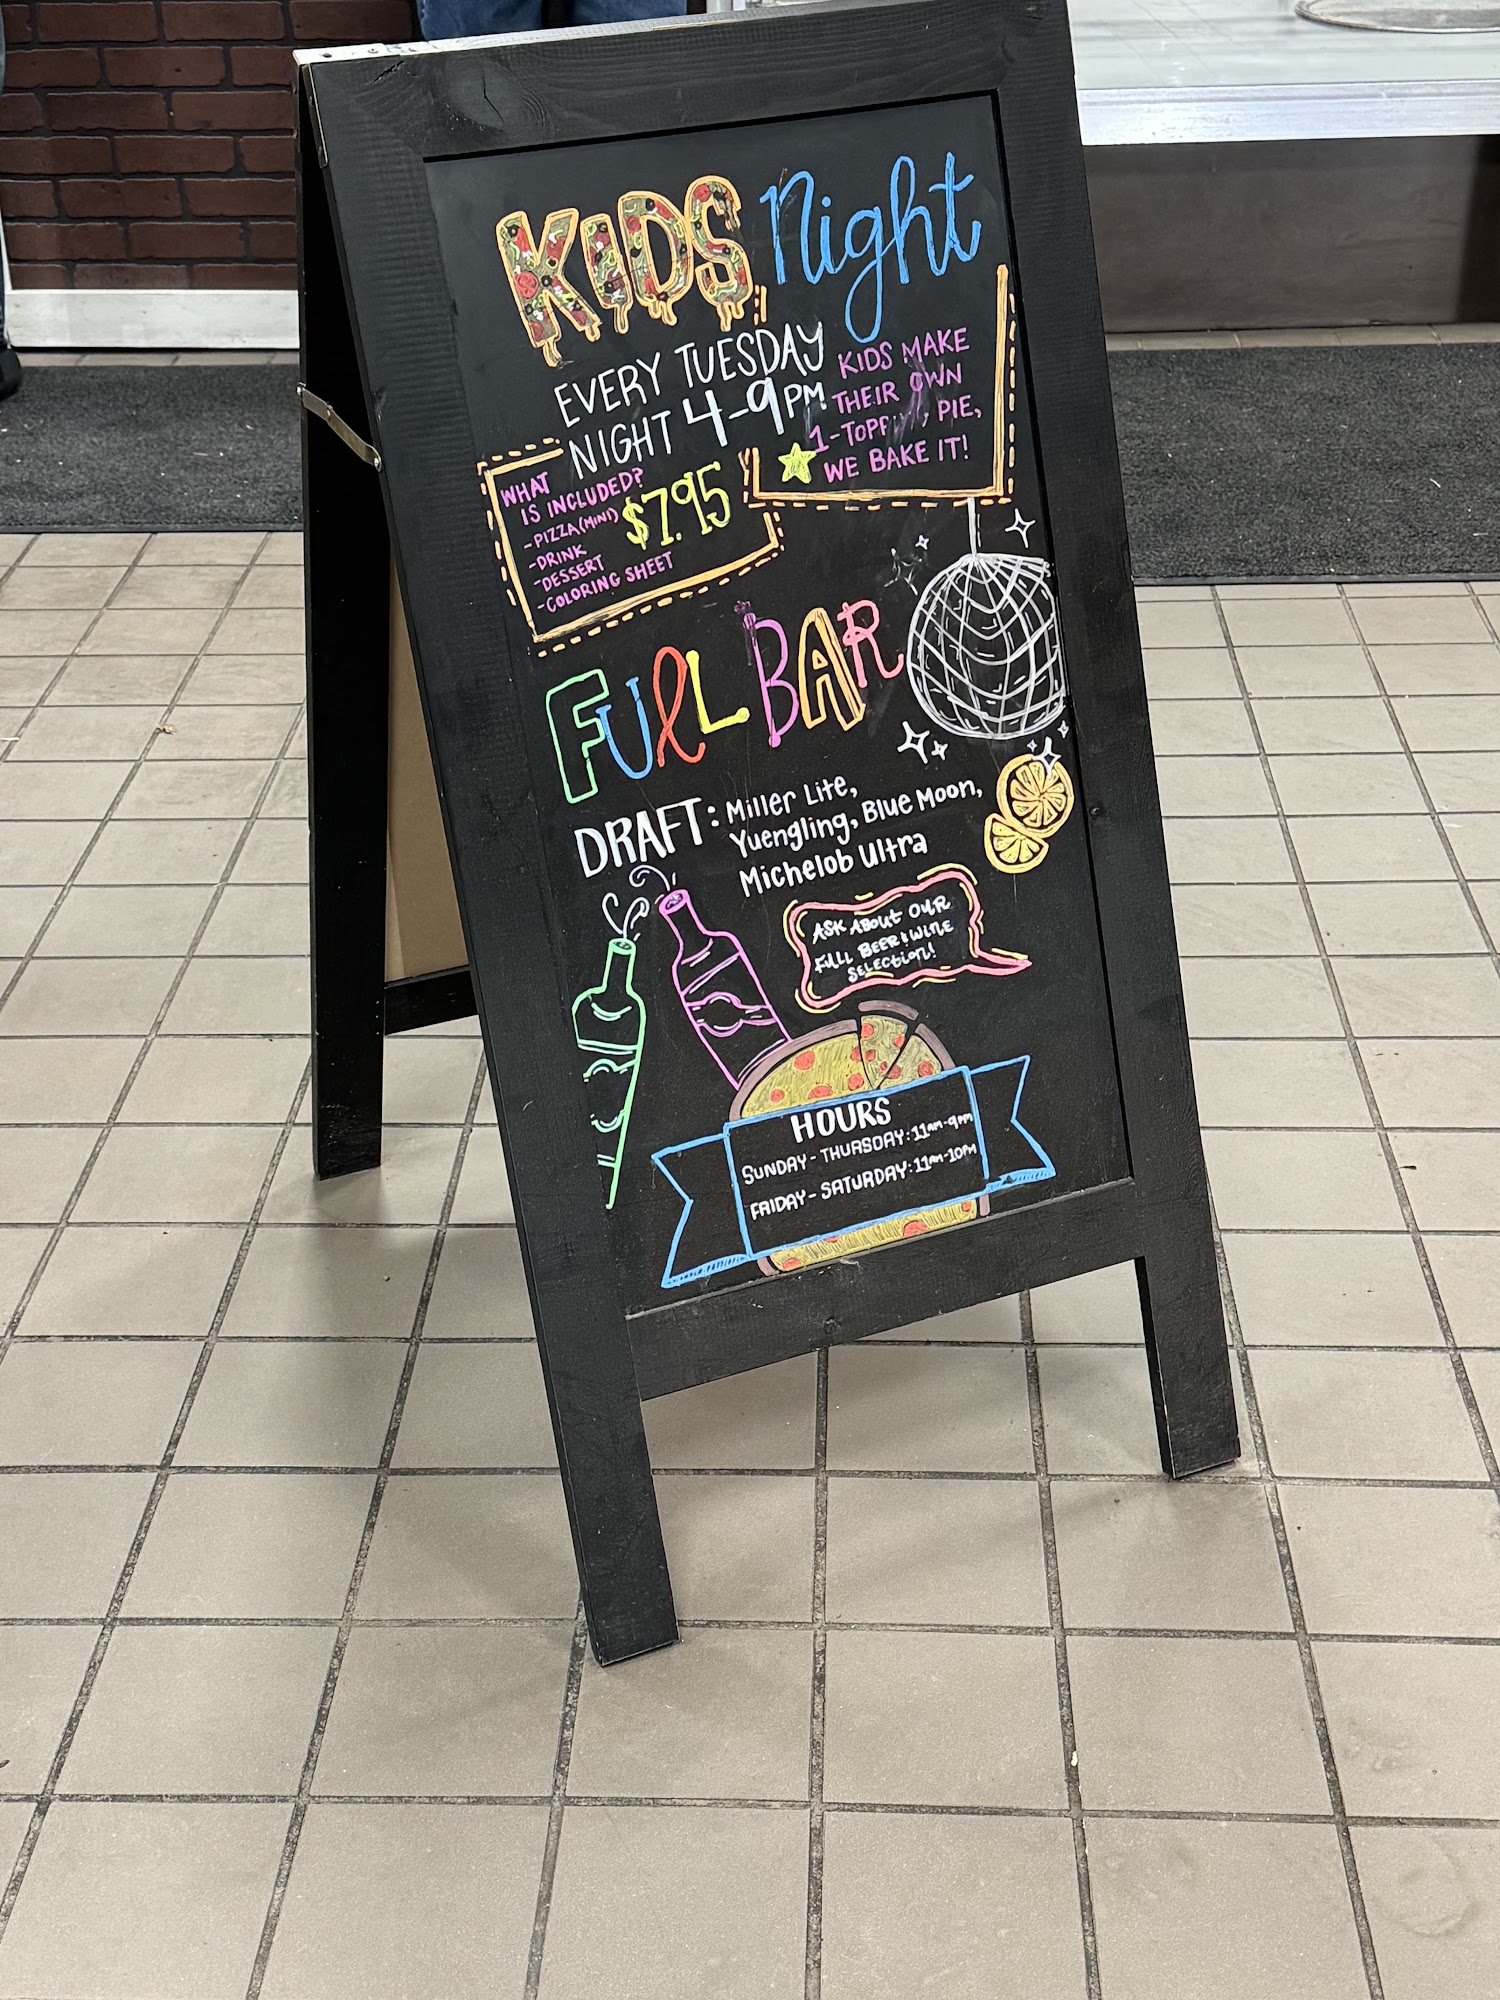 KIDS Night
EVERY TUESDAY
NIGHT 4-9PM
KIDS MAKE
THEIR OWN
1-TOPP PIE,
WE BAKE IT!
WHAT
IS INCLUDED?
-PIZZA(MINI)
-DRINK
-DESSERT
-COLORING SHEET
$7.95
FULL BAR
DRAFT: Miller Lite,
Yuengling, Blue Moon,
Michelob Ultra
ASK ABOUT OUR
FULL BEER & WINE
SELECTION!
HOURS
SUNDAY - THURSDAY: 11AM-9PM
FRIDAY - SATURDAY: 11AM-10PM